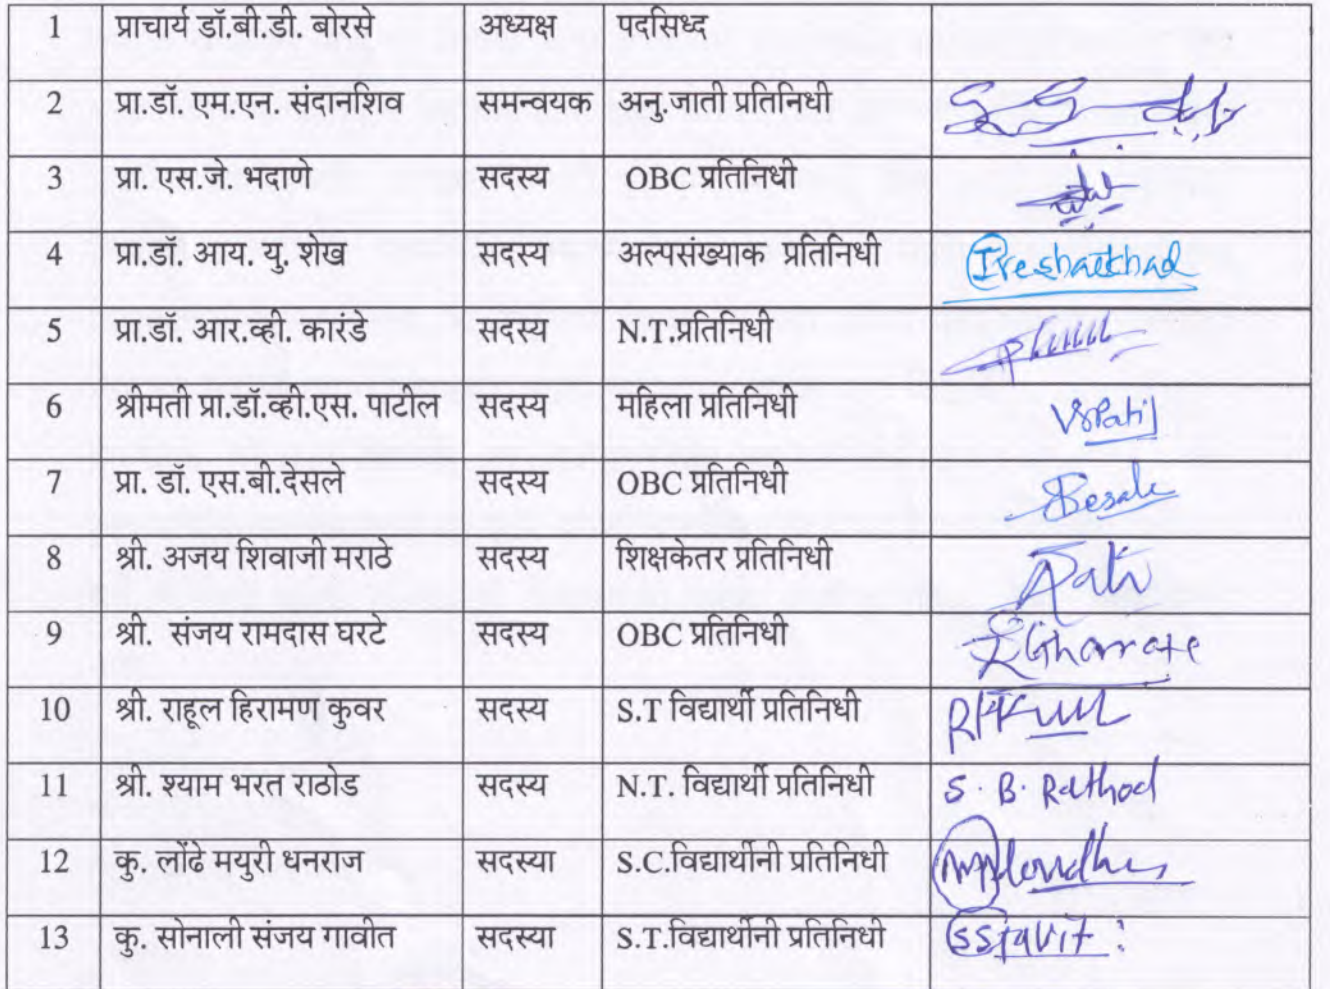 1 प्राचार्य डॉ.बी.डी. बोरसे अध्यक्ष पदसिध्द
2 प्रा.डॉ. एम.एन. संदानशिव समन्वयक अनु.जाती प्रतिनिधी
3 प्रा. एस.जे. भदाणे सदस्य OBC प्रतिनिधी
4 प्रा.डॉ. आय. यु. शेख सदस्य अल्पसंख्याक प्रतिनिधी
5 प्रा.डॉ. आर.व्ही. कारंडे सदस्य N.T.प्रतिनिधी
6 श्रीमती प्रा.डॉ.व्ही.एस. पाटील सदस्य महिला प्रतिनिधी VSPatil
7 प्रा. डॉ. एस.बी.देसले सदस्य OBC प्रतिनिधी
8 श्री. अजय शिवाजी मराठे सदस्य शिक्षकेतर प्रतिनिधी
9 श्री. संजय रामदास घरटे सदस्य OBC प्रतिनिधी
10 श्री. राहूल हिरामण कुवर सदस्य S.T विद्यार्थी प्रतिनिधी
11 श्री. श्याम भरत राठोड सदस्य N.T. विद्यार्थी प्रतिनिधी S. B. Rathod
12 कु. लोंढे मयुरी धनराज सदस्या S.C.विद्यार्थीनी प्रतिनिधी
13 कु. सोनाली संजय गावीत सदस्या S.T.विद्यार्थीनी प्रतिनिधी